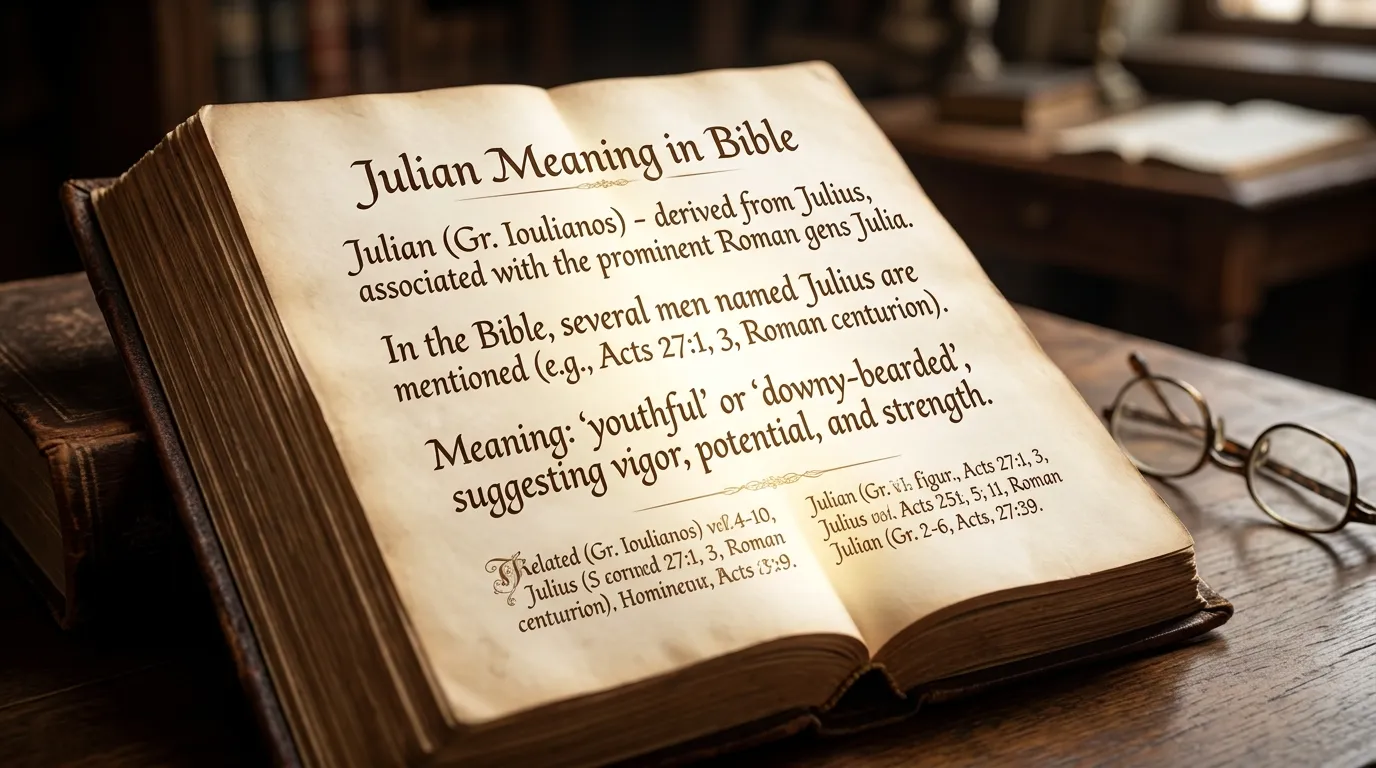 Julian Meaning in Bible
Julian (Gr. Ioulianos) – derived from Julius,
associated with the prominent Roman gens Julia.
In the Bible, several men named Julius are
mentioned (e.g., Acts 27:1, 3, Roman centurion).
Meaning: ‘youthful’ or ‘downy-bearded’,
suggesting vigor, potential, and strength.
(Gr. Ioulianos)
Julius (S comned 27:1, 3, Roman
centurion), Acts
Julian (Gr. figur., Acts 27:1, 3,
Julius Acts 5; 11, Roman
Julian (Gr. 2-6, Acts, 27:39.